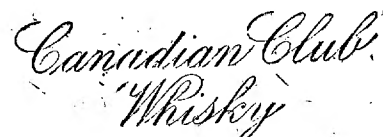 Canadian Club.
Whisky